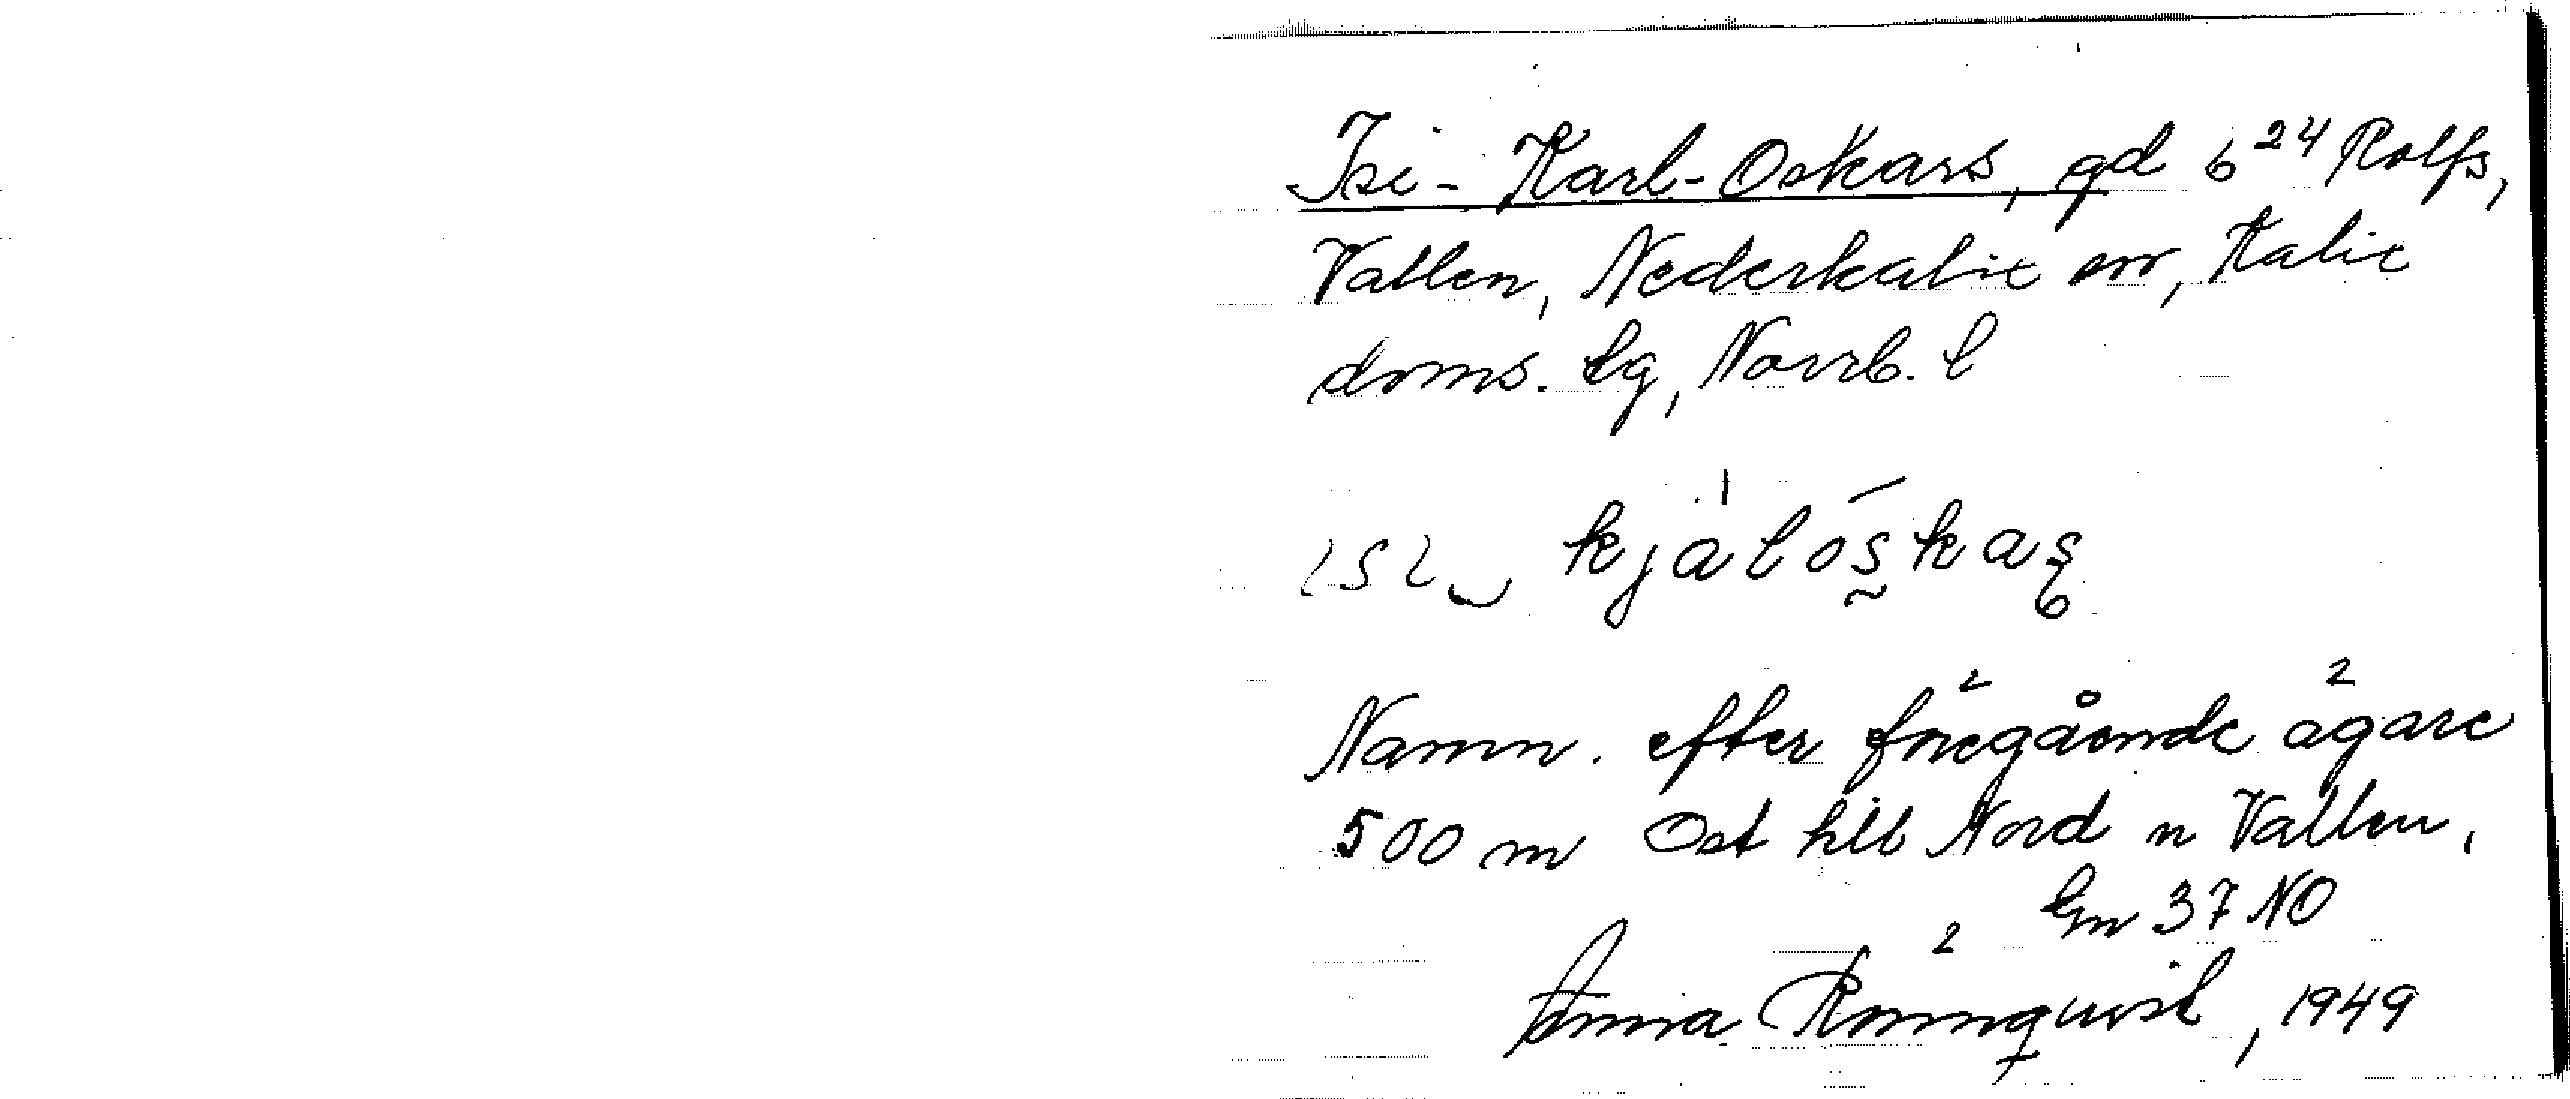 Isi-Karl-Oskars, gd 6²⁴ Rolfs,
Vallen, Nederkalix sn, Kalix
doms. lg, Norrb. l
kjàlóskas
Namn. efter föregående ägare
500 m Ost till Nord n Vallen.
Gm 37 NO
Anna Rönnquist, 1949